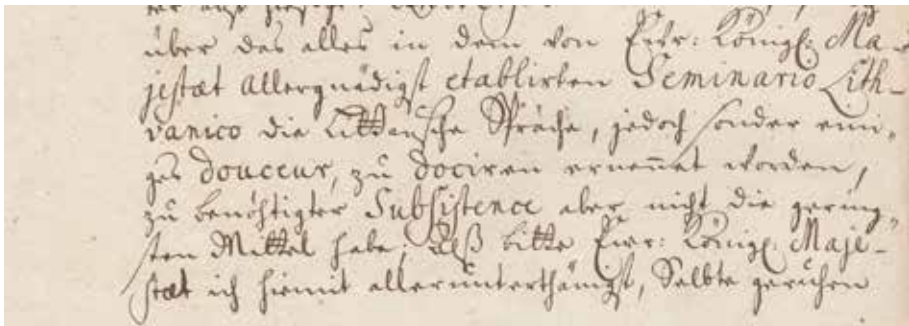 über das alles in dem von Ewr: Königl: Ma-
jestæt allergnädigst etablirten Seminario Lith-
vanico die Littausche Sprache, jedoch sonder eini-
ges douceur, zu dociren ernennet worden,
zu benöhtigter Subsistence aber nicht die gering-
sten Mittel habe; Alß bitte Ewr: Königl: Maje-
stæt ich hiemit allerunterthänigst, Selbte geruhen